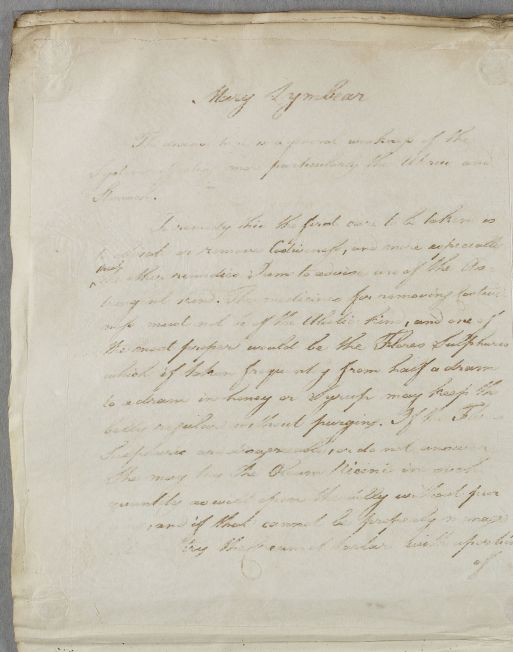 Mary Lymbear
The disease here is a general weakness of the
System affecting more particularly the Uterus and
Stomach.
To remedy this the first care to be taken is
to obviate or remove Costiveness, and more especially
as the other remedies I am to advise are of the As-
tringent kind. The medicines for removing Costive-
ness must not be of the Aloetic kind, and one of
the most proper would be the Flores Sulphuris
which if taken frequently from half a dram
to a dram in honey or Syrup may keep the
belly regular without purging. If the Flores
Sulphuris are disagreeable, or do not answer
She may try the Oleum Ricini in such
quantity as will open the belly without pur
and if that cannot be properly manag
try the cream of tartar with a portion
of